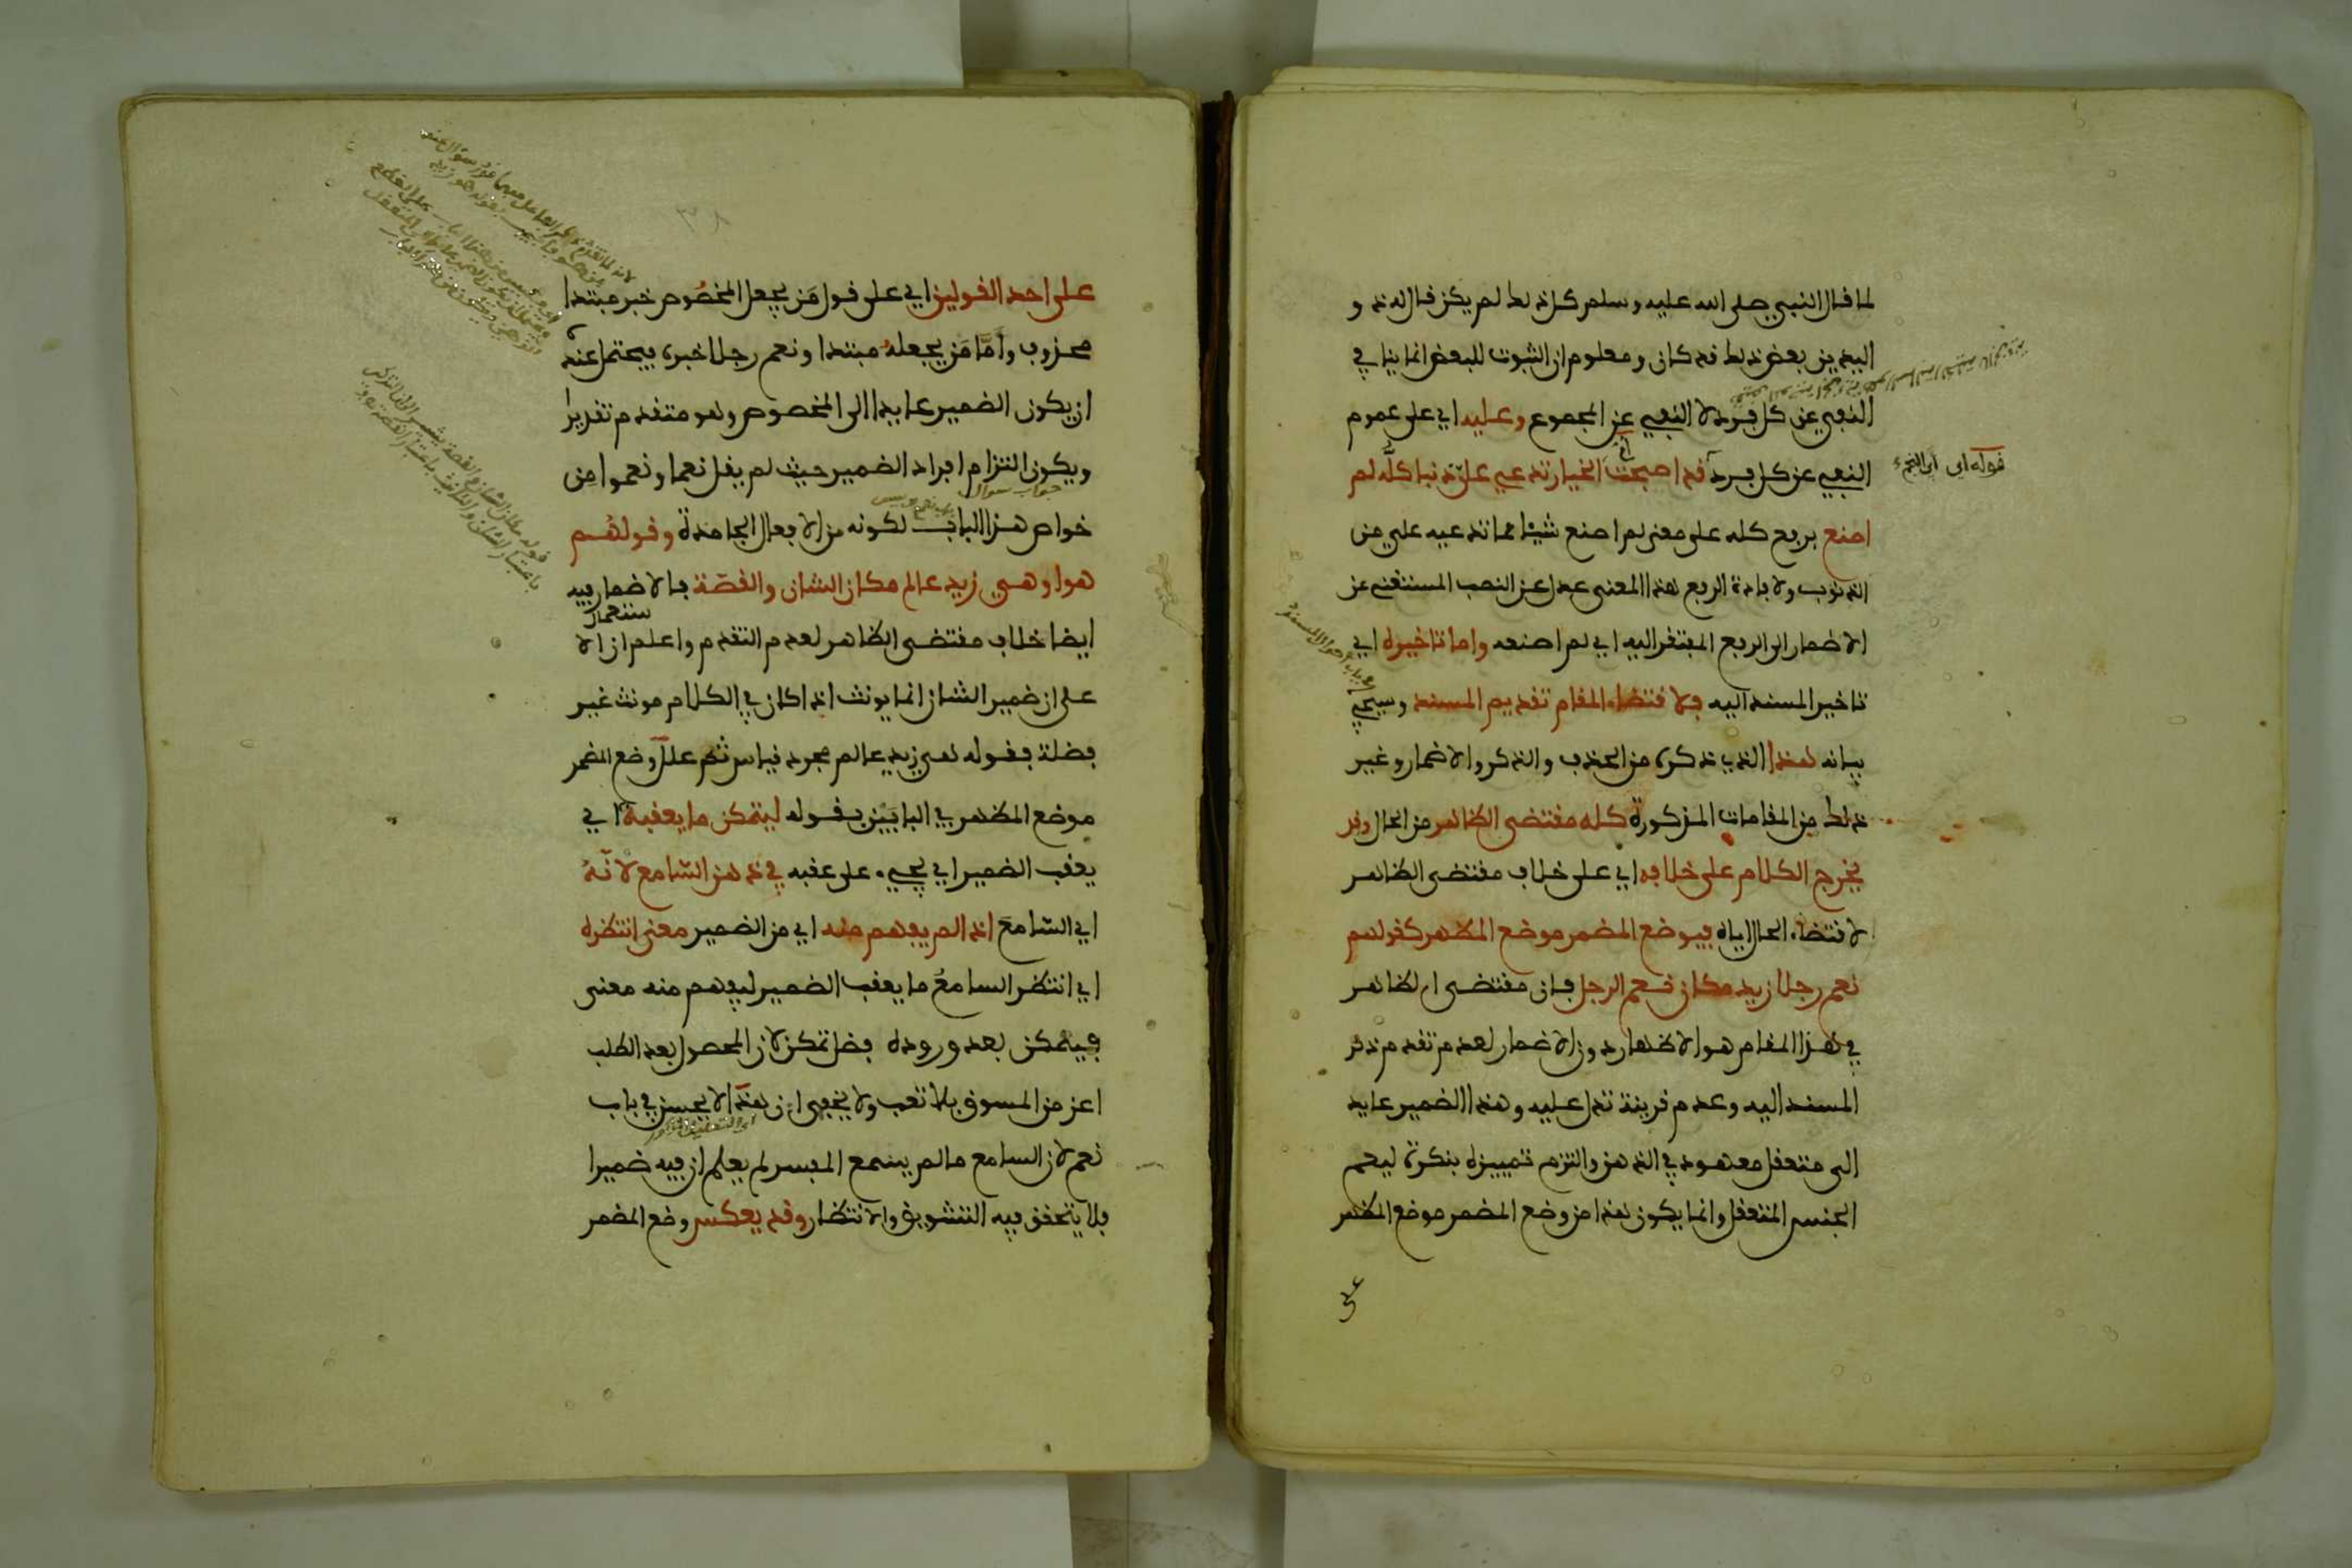 لما قال النبي صلى الله عليه وسلم كل ذلك لم يكن قال له ذو
اليدين بعض ذلك قد كان ومعلوم ان الثبوت للبعض انما ينافي
النفي عن كل فرد لا النفي عن المجموع وعليه اي على عموم
النفي عن كل فرد قد اصبحت ام الخيار تدعي علي ذنبا كله لم
قوله اي ابي النجم
اصنع برفع كله على معنى لم اصنع شيئا مما تدعيه علي من
الذنوب ولافادة الرفع هذا المعنى عدل عن النصب المستغني عن
الاضمار الى الرفع المفتقر اليه اي لم اصنعه واما تاخيره اي
تاخير المسند اليه فلاقتضاء المقام تقديم المسند وسيجيء
بيانه هذا الذي ذكره من الحذف والذكر والاضمار وغير
ذلك من المقامات المذكورة كله مقتضى الظاهر من الحال وقد
يخرج الكلام على خلافه اي على خلاف مقتضى الظاهر
لاقتضاء الحال اياه فيوضع المضمر موضع المظهر كقولهم
نعم رجلا زيد مكان نعم الرجل فان مقتضى الظاهر
في هذا المقام هو الاظهار دون الاضمار لعدم تقدم ذكر
المسند اليه وعدم قرينة تدل عليه وهذا الضمير عايد
الى متعقل معهود في الذهن والتزم تمييزه بنكرة ليعم
الجنس المتعقل وانما يكون هذا من وضع المضمر موضع المظهر
على
٣٨
على احد القولين اي على قول من يجعل المخصوص خبر مبتدا
محذوف واما من يجعله مبتدا ونعم رجلا خبره فيحتمل عنده
ان يكون الضمير عايدا الى المخصوص وهو متقدم تقديرا
ويكون التزام افراد الضمير حيث لم يقل نعما ونعموا من
جواب سوال
خواص هذا الباب لكونه من الافعال الجامدة وقولهم
هو او هي زيد عالم مكان الشان والقصة فالاضمار فيه
ايضا خلاف مقتضى الظاهر لعدم التقدم واعلم ان الا
ستعمال
على ان ضمير الشان انما يونث اذا كان في الكلام مونث غير
فضلة فقوله هي زيد عالم مجرد قياس ثم علل وضع المضمر
موضع المظهر في البابين بقوله ليتمكن ما يعقبه اي
يعقب الضمير اي يجيء على عقبه في ذهن السامع لانه
اي السامع اذا لم يفهم منه اي من الضمير معنى انتظره
اي انتظر السامع ما يعقب الضمير ليفهم منه معنى
فيتمكن بعد وروده فضل تمكن لان المحصول بعد الطلب
اعز من المسوق بلا تعب ولا يخفى ان هذا لا يحسن في باب
اي التعليل المذكور
نعم لان السامع ما لم يسمع المفسر لم يعلم ان فيه ضميرا
فلا يتحقق فيه التشويق والانتظار وقد يعكس وضع المضمر